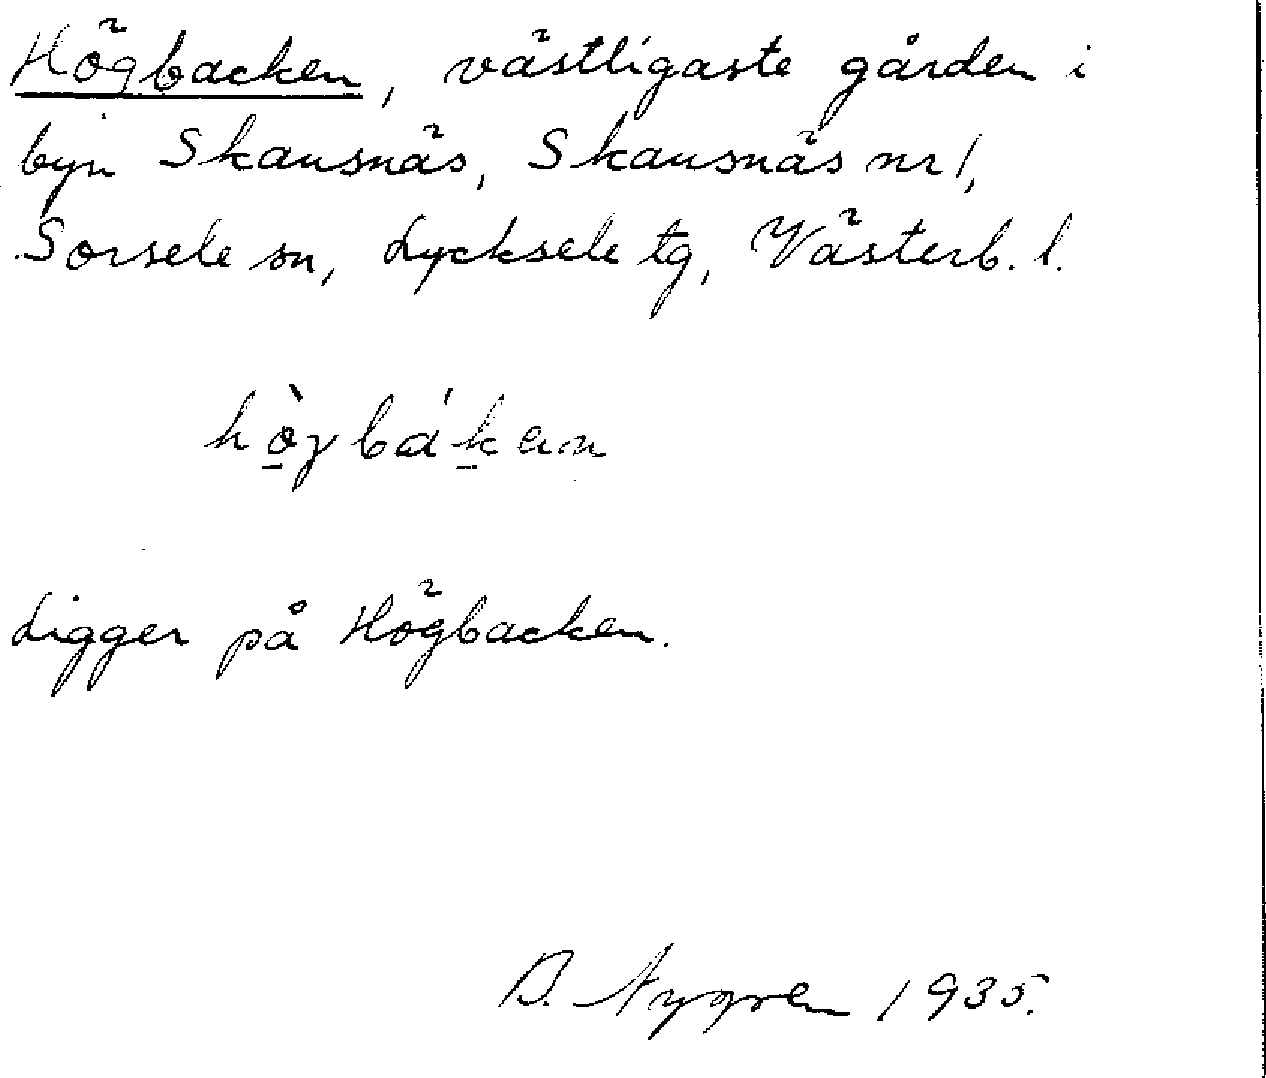 Högbacken, västligaste gården i
byn Skansnäs, Skansnäs nr 1,
Sorsele sn, Lycksele tg, Västerb. l.
Ligger på Högbacken.
Nygren 1935.